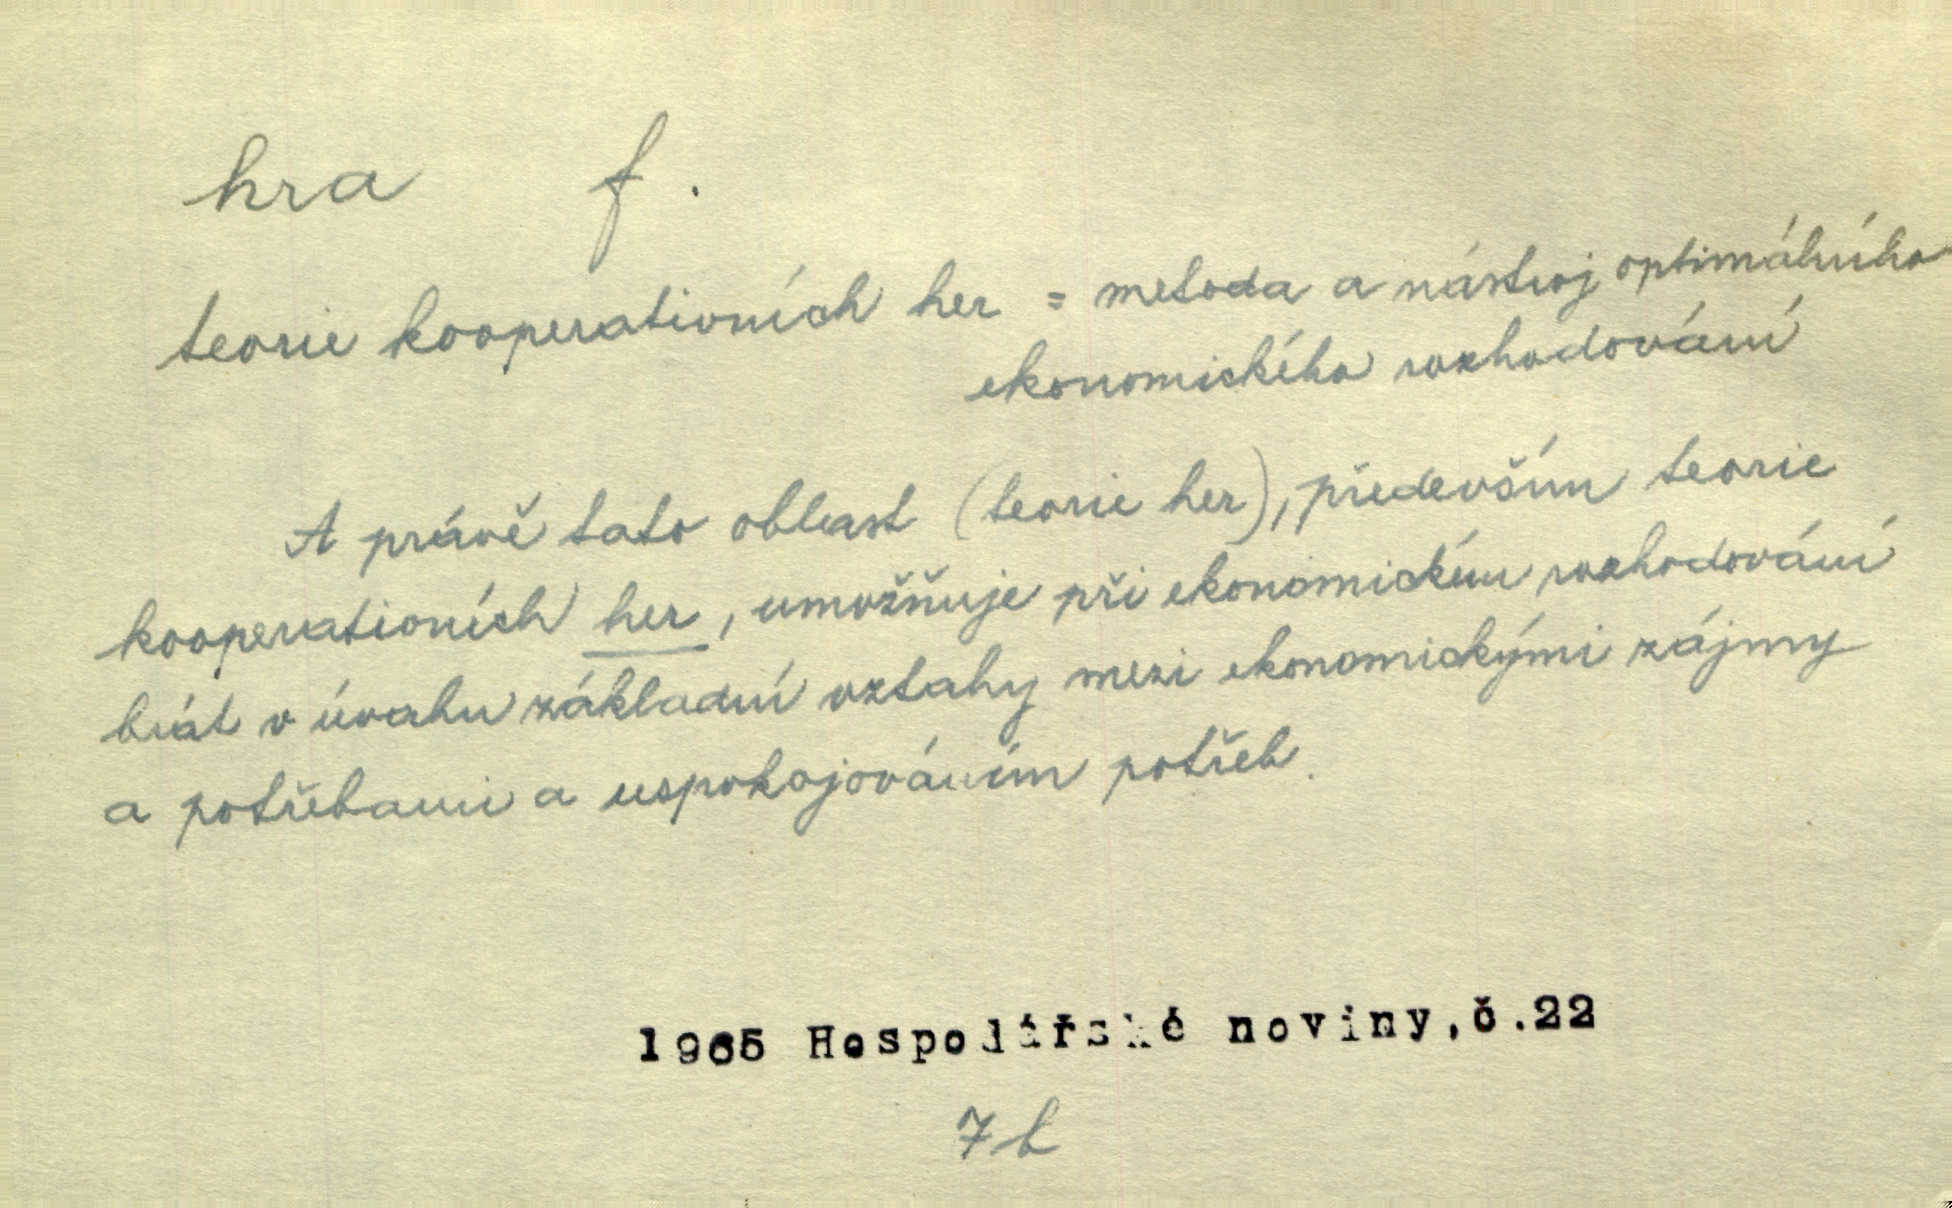 hra f.
teorie kooperativních her = metoda a nástroj optimálního
ekonomického rozhodování
A právě tato oblast (teorie her), především teorie
kooperativních her, umožňuje při ekonomickém rozhodování
brát v úvahu základní vztahy mezi ekonomickými zájmy
a potřebami a uspokojováním potřeb.
1965 Hospodářské noviny, č.22
7b